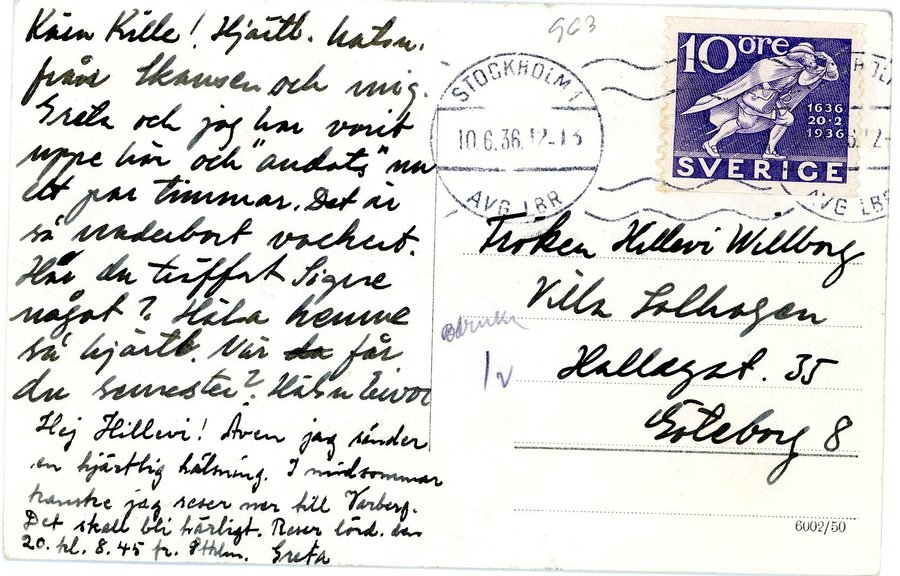 Kära Kille! Hjärtl. halsn.
från Skansen och mig.
Greta och jag har varit
uppe här och "andats" nu
ett par timmar. Det är
så underbart vackert.
Har du träffat Signe
något? Hälsa henne
så hjärtl. När da får
du semester? Hälsn Eivor
Hej Hillevi! Även jag sänder
en hjärtlig hälsning. I midsommar
kanske jag reser ner till Varberg.
Det skall bli härligt. Reser lörd. den
20. kl. 8.45 fr. Sthlm. Greta
963
STOCKHOLM 1
10.6.36. 12-13
AVG LBR
10 öre
1636
20·2
1936
SVERIGE
AVG LBR
Fröken Hillevi Willborg
Villa Solhagen
Hallagat. 35
Göteborg 8
6002/50